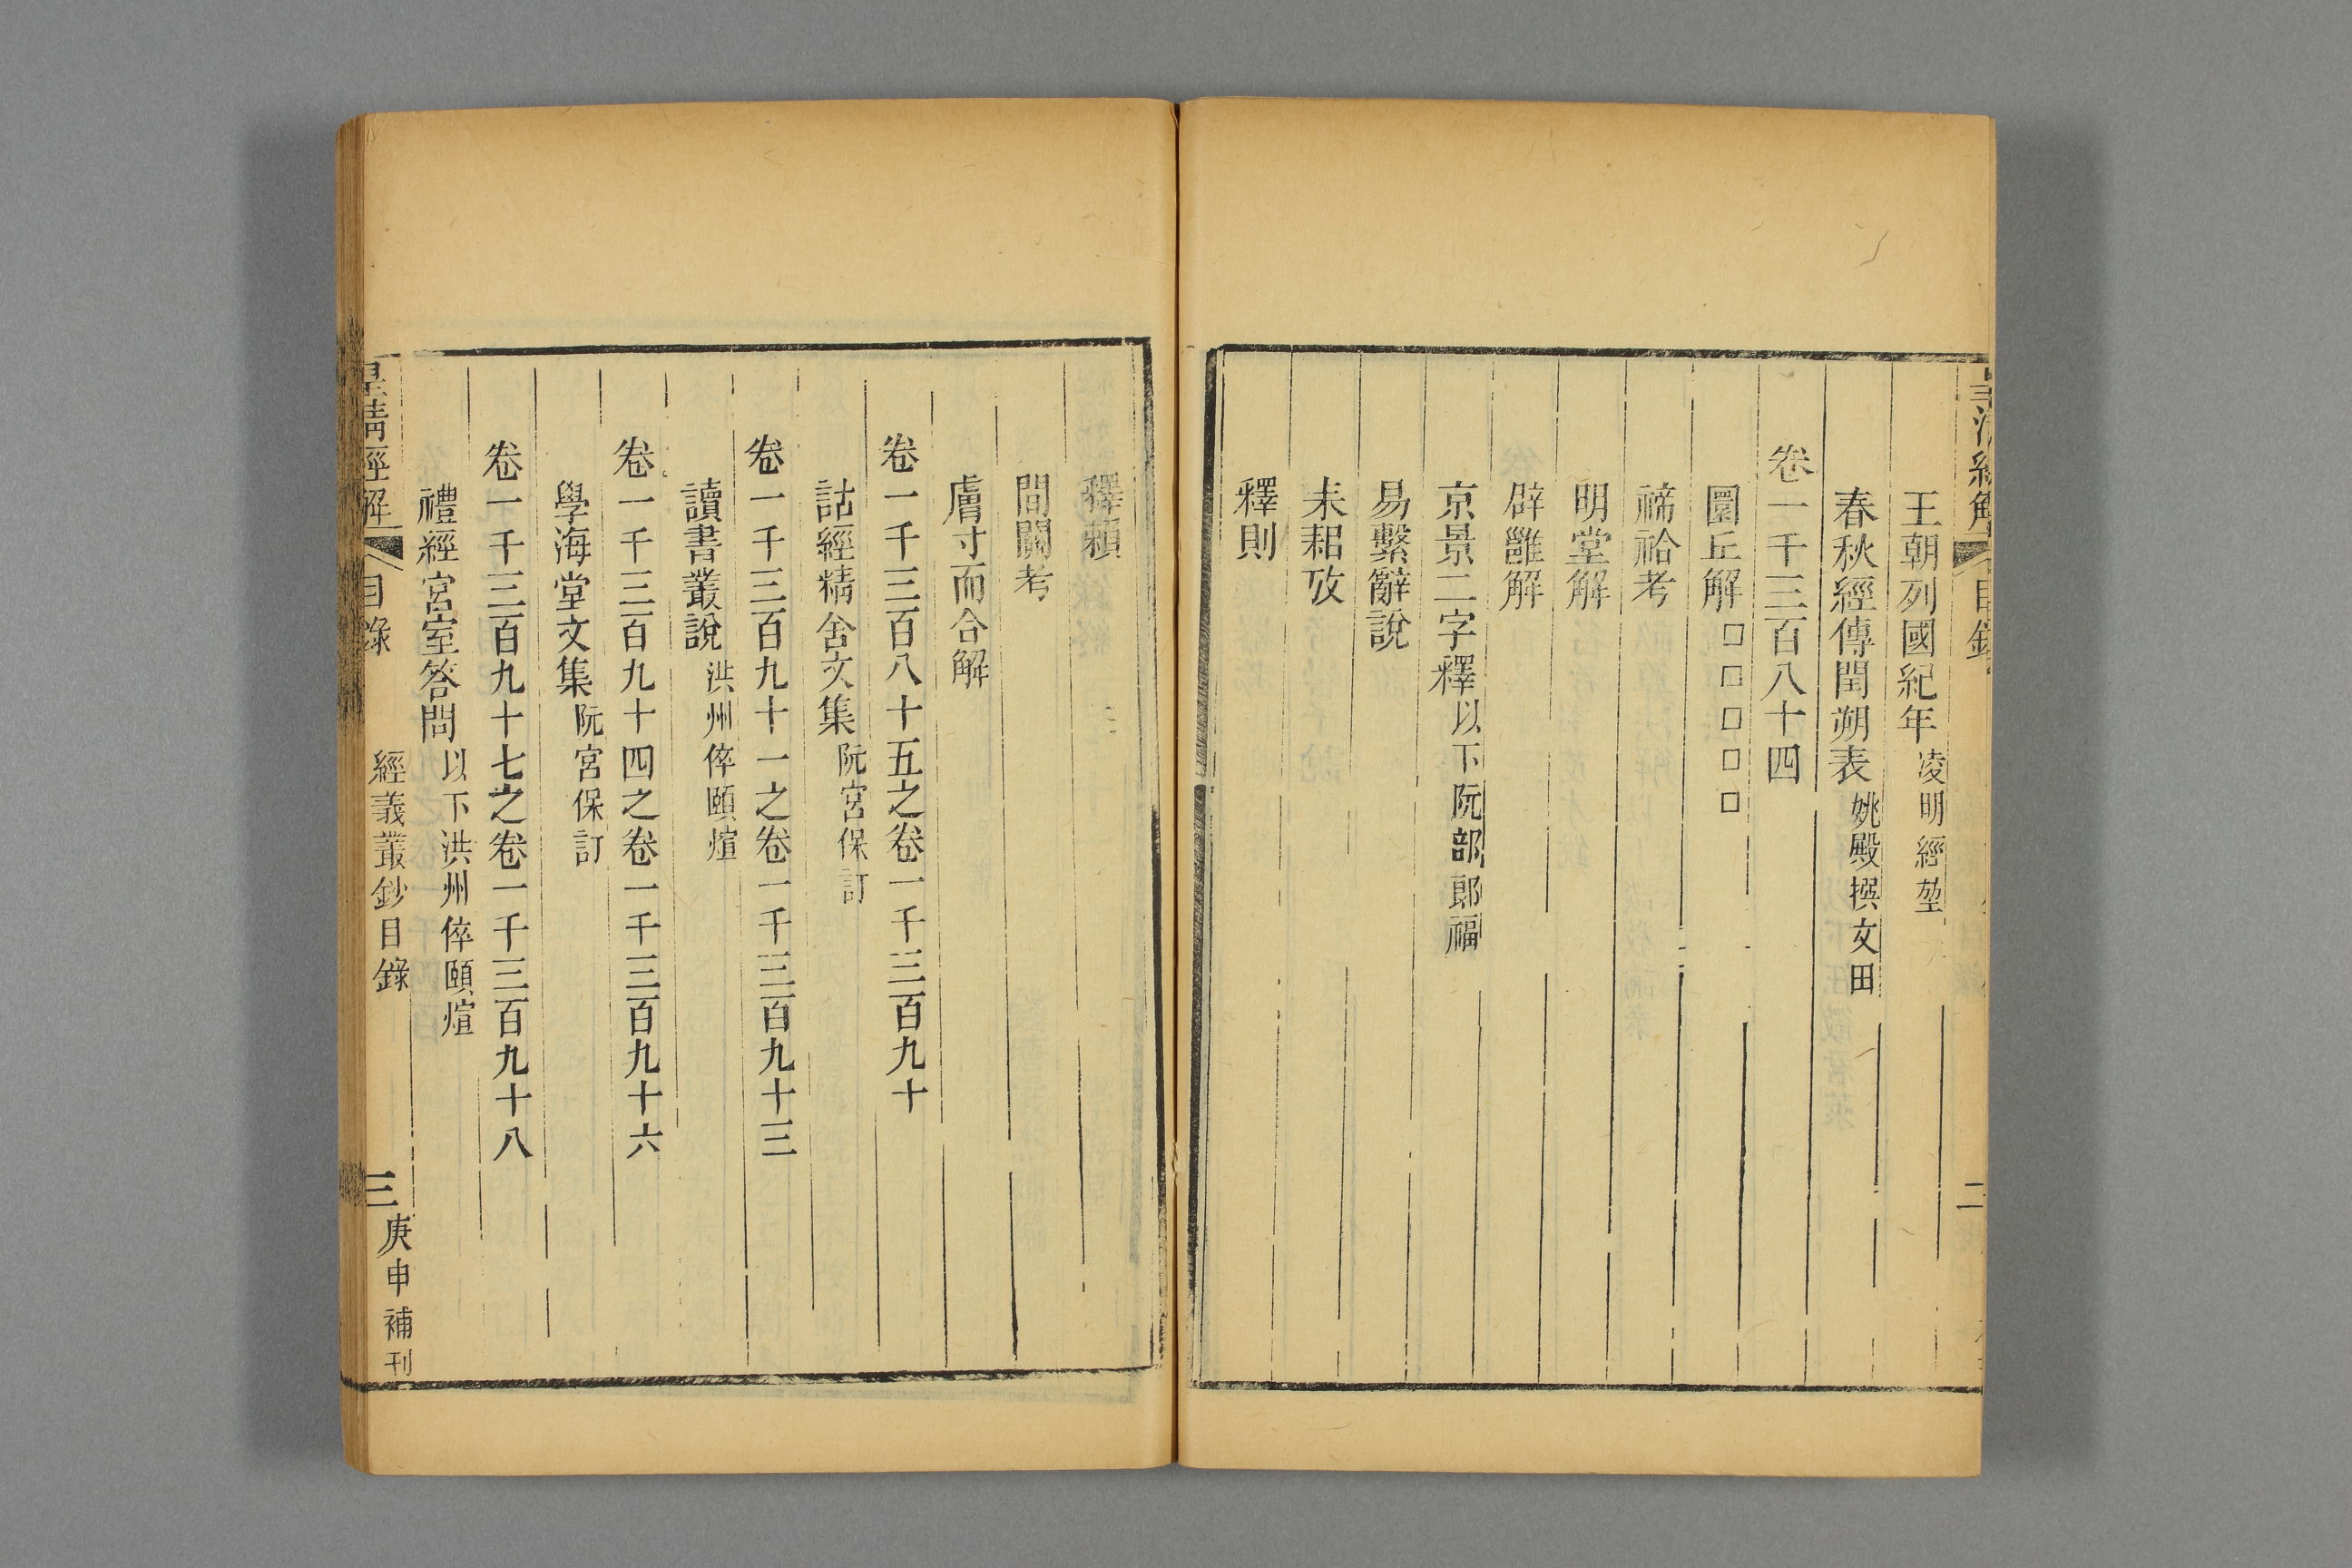 王朝列國紀年凌明經堃
春秋經傳閏朔表姚殿撰文田
卷一千三百八十四
圜丘解□□□□□
禘祫考
明堂解
辟雝解
京景二字釋以下阮部郎福
易繫辭說
耒耜攷
釋則
釋賴
間關考
膚寸而合解
卷一千三百八十五之卷一千三百九十
詁經精舍文集阮宮保訂
卷一千三百九十一之卷一千三百九十三
讀書叢說洪州倅頤煊
卷一千三百九十四之卷一千三百九十六
學海堂文集阮宮保訂
卷一千三百九十七之卷一千三百九十八
禮經宮室答問以下洪州倅頤煊
皇清經解 目錄 經義叢鈔目錄 三 庚申補刊